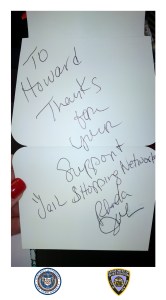 To
Howard
Thanks
for
your
Support
Jail Stopping Network